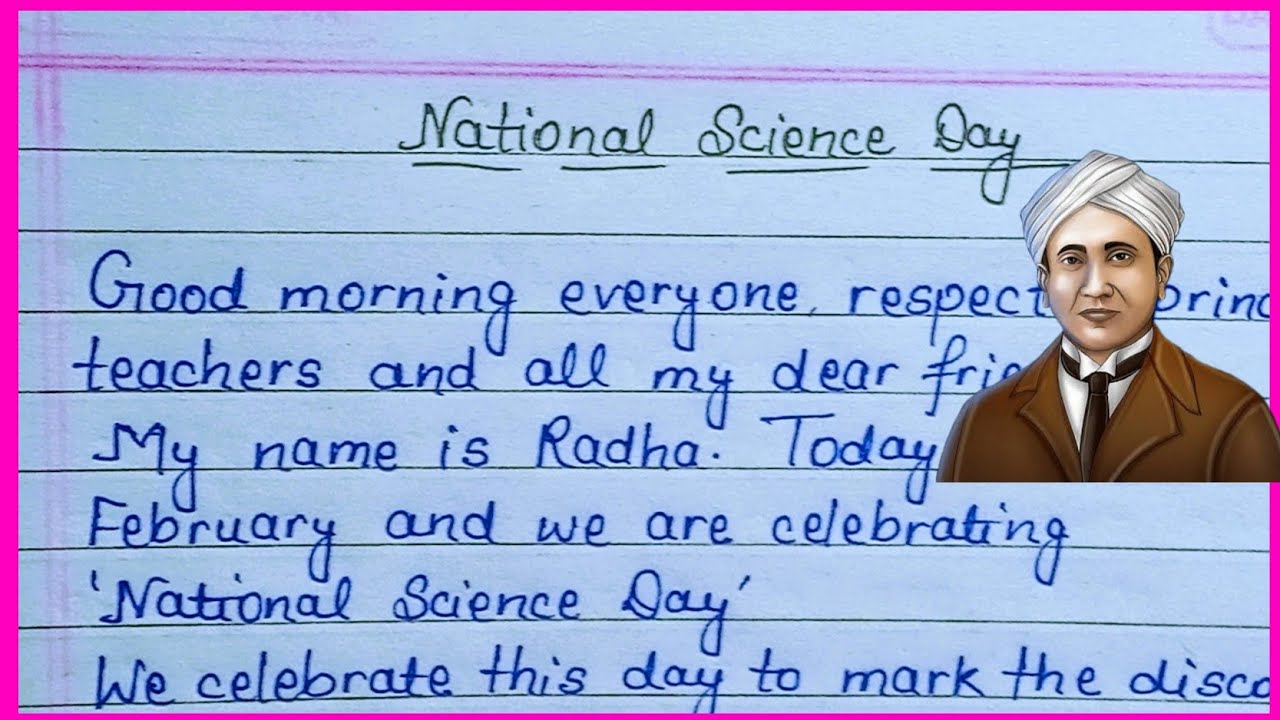 National Science Day
Good morning everyone, respect
teachers and all my dear
My name is Radha. Today
February and we are celebrating
'National Science Day'
We celebrate this day to mark the